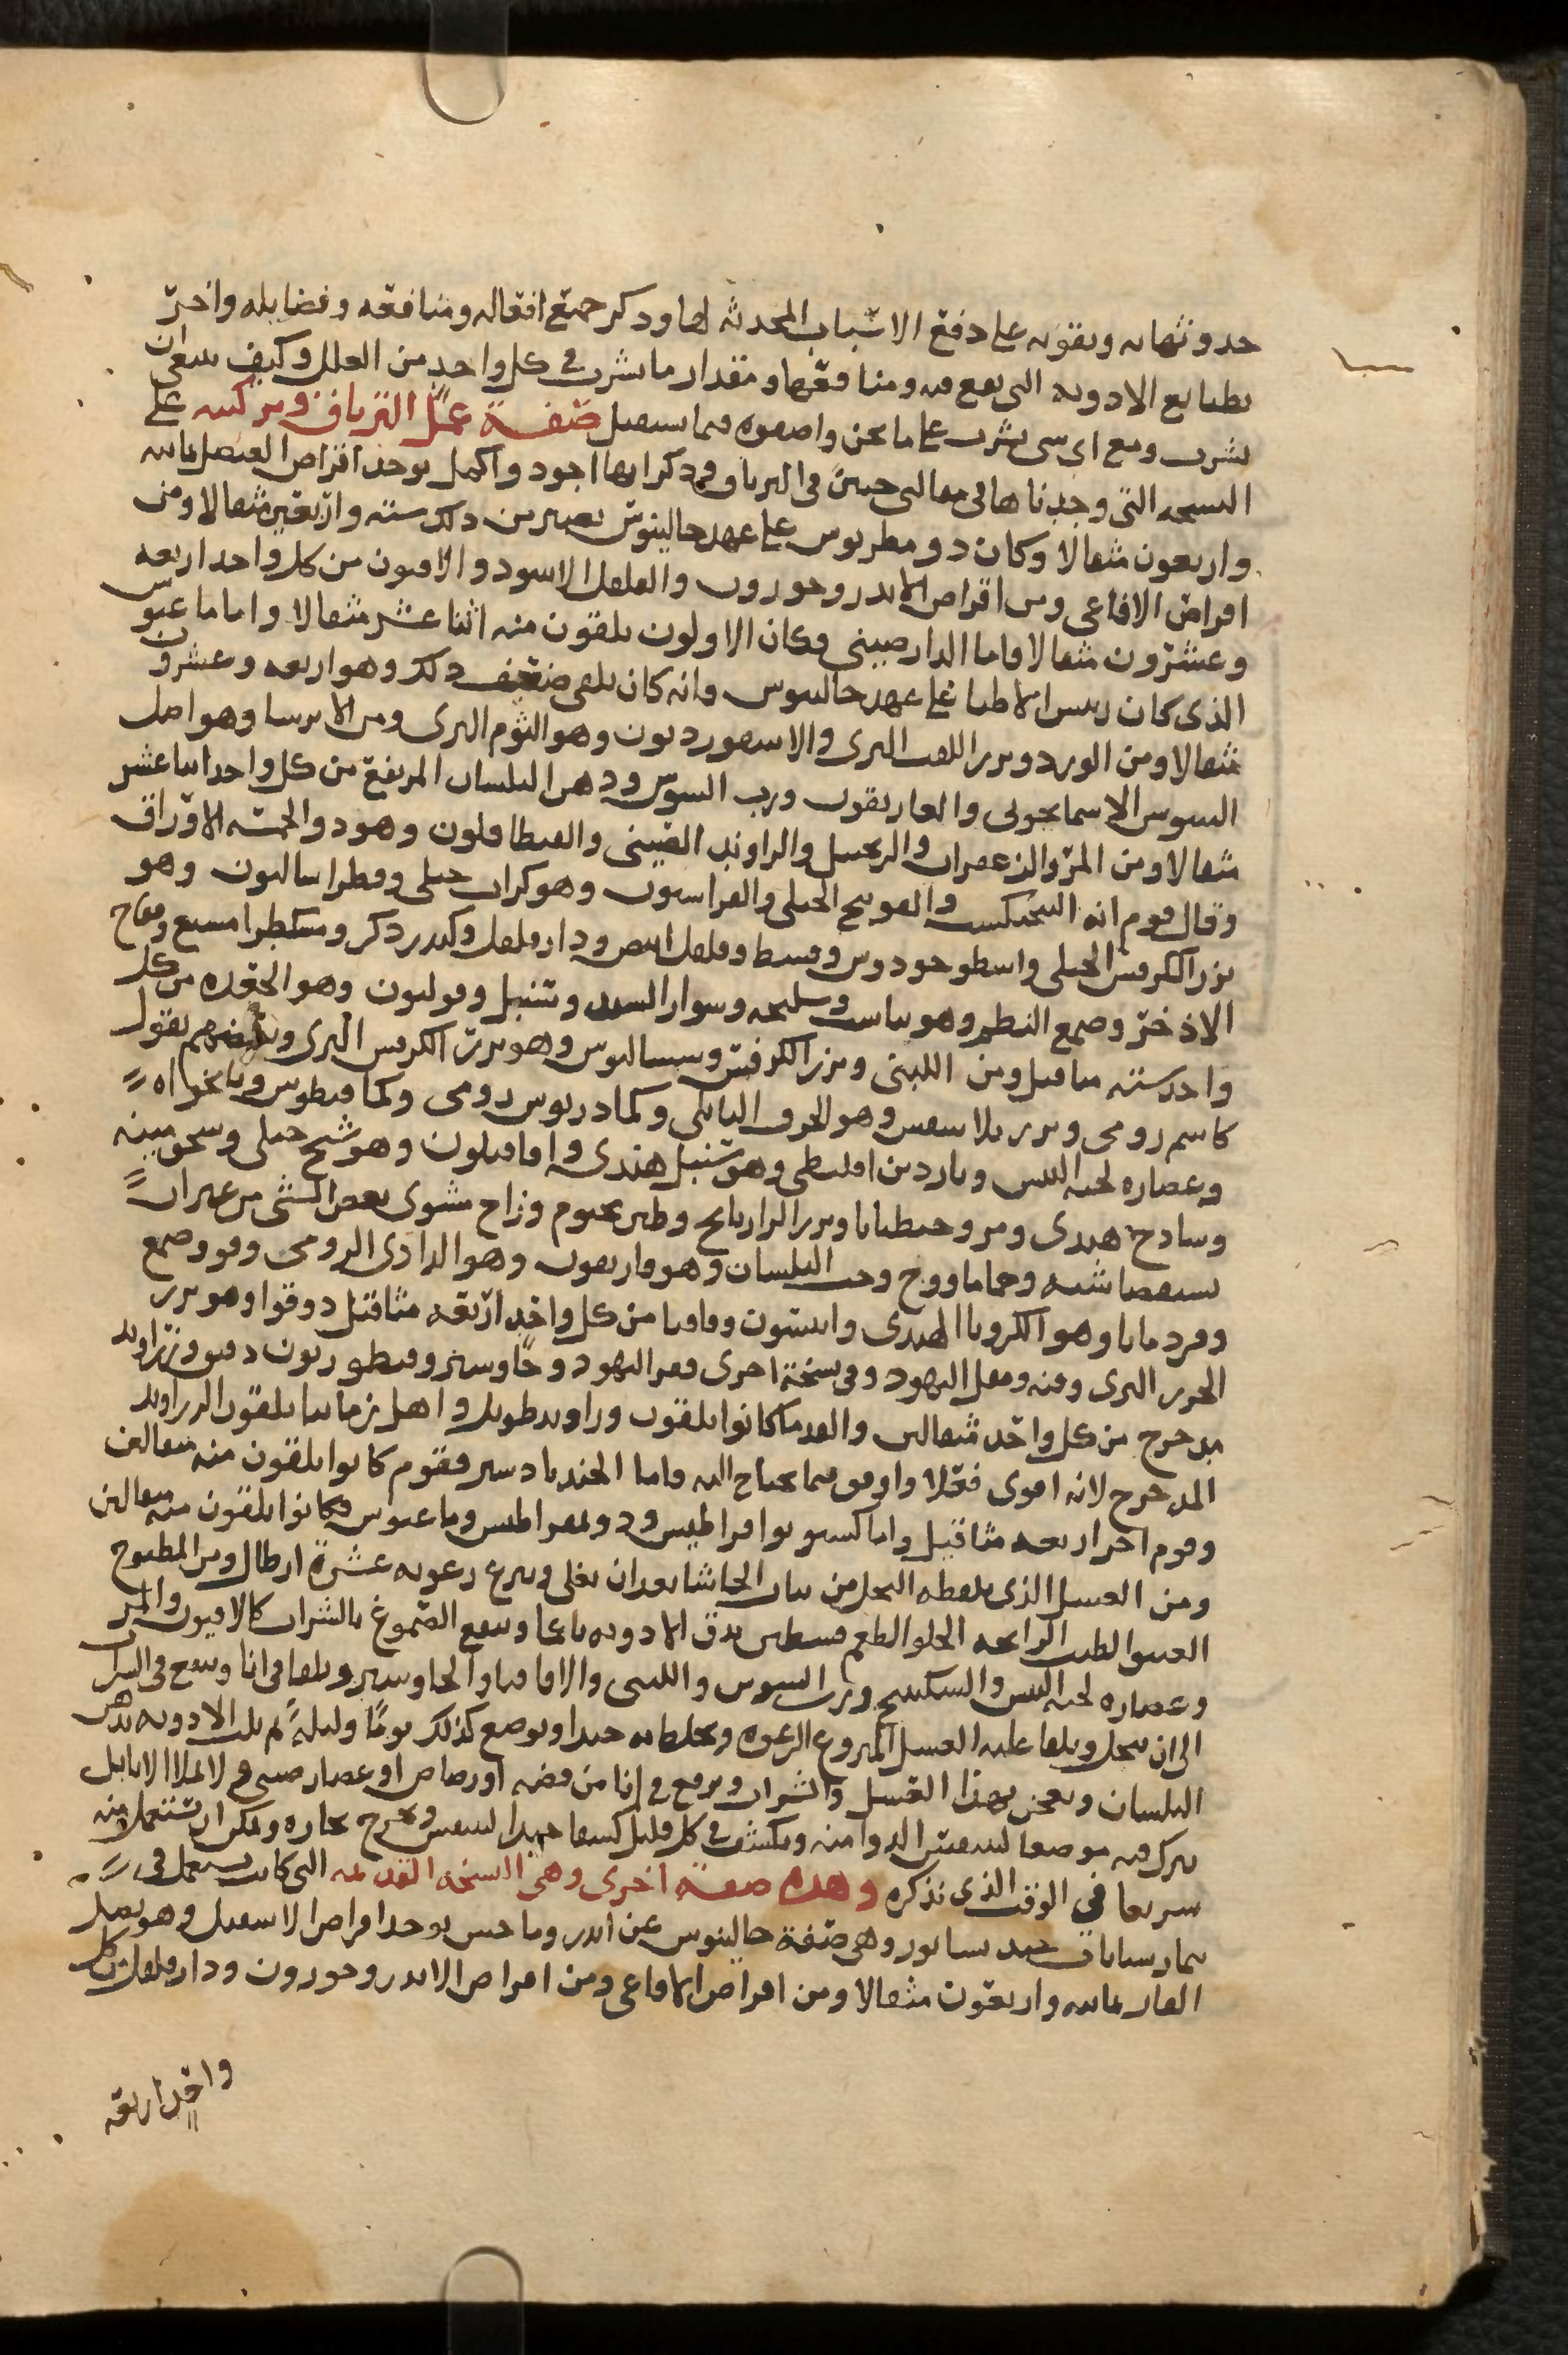 حدوثها به ويقويه على دفع الاسباب المحدثه لها وذكر جميع افعاله ومنافعه وفضايله واخبر
بطبايع الادويه التى تقع فيه ومنافعها ومقدار ما يشرب فى كل واحد من العلل وكيف ينبغى ان
يشرب ومع اى شى يشرب على ما نحن واصفوه فيما يستقبل صفة عمل الترياق وتركيبه على
النسخه التى وجدناها فى مقالتى حنين فى الترياق وذكر انها اجود واكمل يوخذ اقراص العنصل ثمانيه
واربعون مثقالا وكان دومقطريوس على عهد جالينوس يصير من ذلك سته واربعين مثقالا ومن
اقراص الافاعى ومن اقراص الاندروخورون والفلفل الاسود والافيون من كل واحد اربعه
وعشرون مثقالا فاما الدارصينى فكان الاولون يلقون منه اثنا عشر مثقالا واما ماغنوس
الذى كان رييس الاطبا على عهد جالينوس فانه كان يلقى ضعف ذلك وهو اربعه وعشرون
مثقالا ومن الورد وبزر اللفت البرى والاسقورديون وهو الثوم البرى ومن الايرسا وهو اصل
السوس الاسمانجونى والغاريقون ورب السوس ودهن البلسان المرتفع من كل واحد اثنا عشر
مثقالا ومن المر والزعفران والزنجبيل والراوند الصينى والفنطافلون وهو ذو الخمسه الاوراق
وقال قوم انه البنجنكست والفوتنج الجبلى والفراسيون وهو كراث جبلى وفطراساليون وهو
بزر الكرفس الجبلى واسطوخودوس وقسط وفلفل ابيض ودارفلفل وكندر ذكر ومشكطرامشيع وفقاح
الاذخر وصمع البطم وهو وسليخه وسوار السند وسنبل وفوليون وهو الجعده من كل
واحد سته مثاقيل ومن اللبنى وبزر الكرفس وسساليوس وهو بزر الكرفس البرى وبعضهم يقول
كاشم رومى وبزر بلاسفيس وهو الحرف البابلى وكمادريوس رومى وكمافيطوس ونانخواه
وعصاره لحيه التيس وناردين اقليطى وهو سنبل هندى وافافيلون وهو شيح جبلى
وسادج هندى ومر وجنطيانا وبزر الرازيانج وطين مختوم وزاج مشوى بعض الشى من غير ان
يستقصا شيه وحماما ووج وحب البلسان وهو فاريقون وهو الداذى الرومى وفو وصمع
وقردمانا وهو الكرويا الهندى وانيسون وقاقيا من كل واحد اربعه مثاقيل دوقوا وهو بزر
الجزر البرى وقنه ومقل اليهود وفى نسخة اخرى قفر اليهود وجاوشير وقنطوريون دقيق وزراوند
مدحرج من كل واحد مثقالين والقدما كانوا يلقون زراوند طويل واهل زماننا يلقون الزراوند
المدحرج لانه اقوى فعلا واوفق فيما يحتاج اليه فاما الجندبادستر فقوم كانوا يلقون منه مثقالين
وقوم اخر اربعه مثاقيل واما كسنوبوا قراطيس ودوبمقراطيس وماغنوس فكانوا يلقون منه مثقالين
ومن العسل الذى يلقطه النحل من نبات الحاشا بعد ان يغلى وينزع رغوته عشرة ارطال ومن المطبوخ
العتيق الطيب الرايحه الحلو الطعم قسطين يدق الادويه ناعما وينقع الصموغ بالشراب كالافيون والمر
وعصاره لحيه التيس والسكبينج ورب السوس واللبنى والاقاقيا والجاوشير ويلقا فى انا وينقع فى الشراب
الى ان ينحل ويلقا عليه العسل المنزوع الرغوه ويخلطا به جيدا ويوضع كذلك يوما وليلة ثم يلت الادويه بدهن
البلسان ويعجن بهذا العسل والشراب ويرفع فى انا من فضه او رصاص او غضار صينى ولا يملا الانا بل
يترك فيه موضعا ليتنفس الدوا منه ويكشف فى كل قليل كشفا جيدا ليتنفس ويخرج بخاره ويمكن ان تستعمل منه
سريعا فى الوقت الذى نذكره وهذه صفة اخرى وهى النسخه القديمه التى كانت يستعمل فى
بيمارستانات جندى سابور وهى صفة جالينوس عن اندروماخس يوخذ اقراص الاسقيل وهو بصل
الفار ثمانيه واربعون مثقالا ومن اقراص الافاعى ومن اقراص الاندروخورون ودارفلفل من كل
واحد اربعه